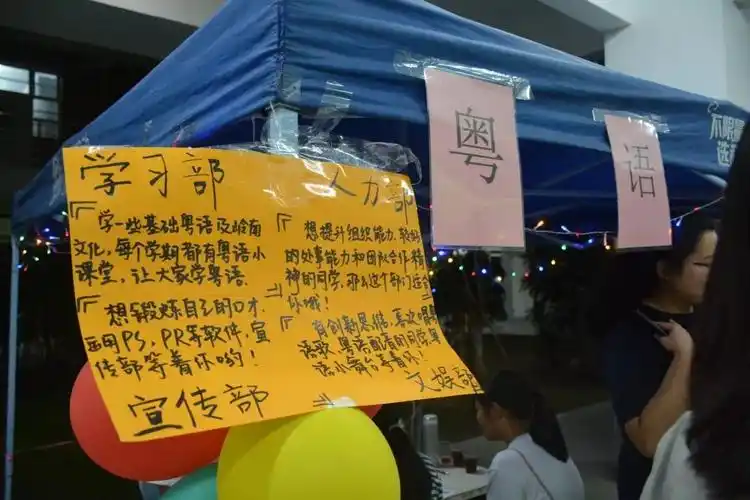 学习部
『 学一些基础粤语及岭南
文化,每个学期都有粤语小
课堂,让大家学粤语.
『 想锻炼自己的口才,
运用PS,PR等软件,宣
传部等着你哟!
宣传部 』
人力部
『 想提升组织能力,较好
的处事能力和团队合作精
神的同学,那么这个部门适合
你哦!
『 有创新思维,喜欢唱粤
语歌,粤语配音的同学,粤
语小舞台等着你!
文娱部
粤
语
不限
选